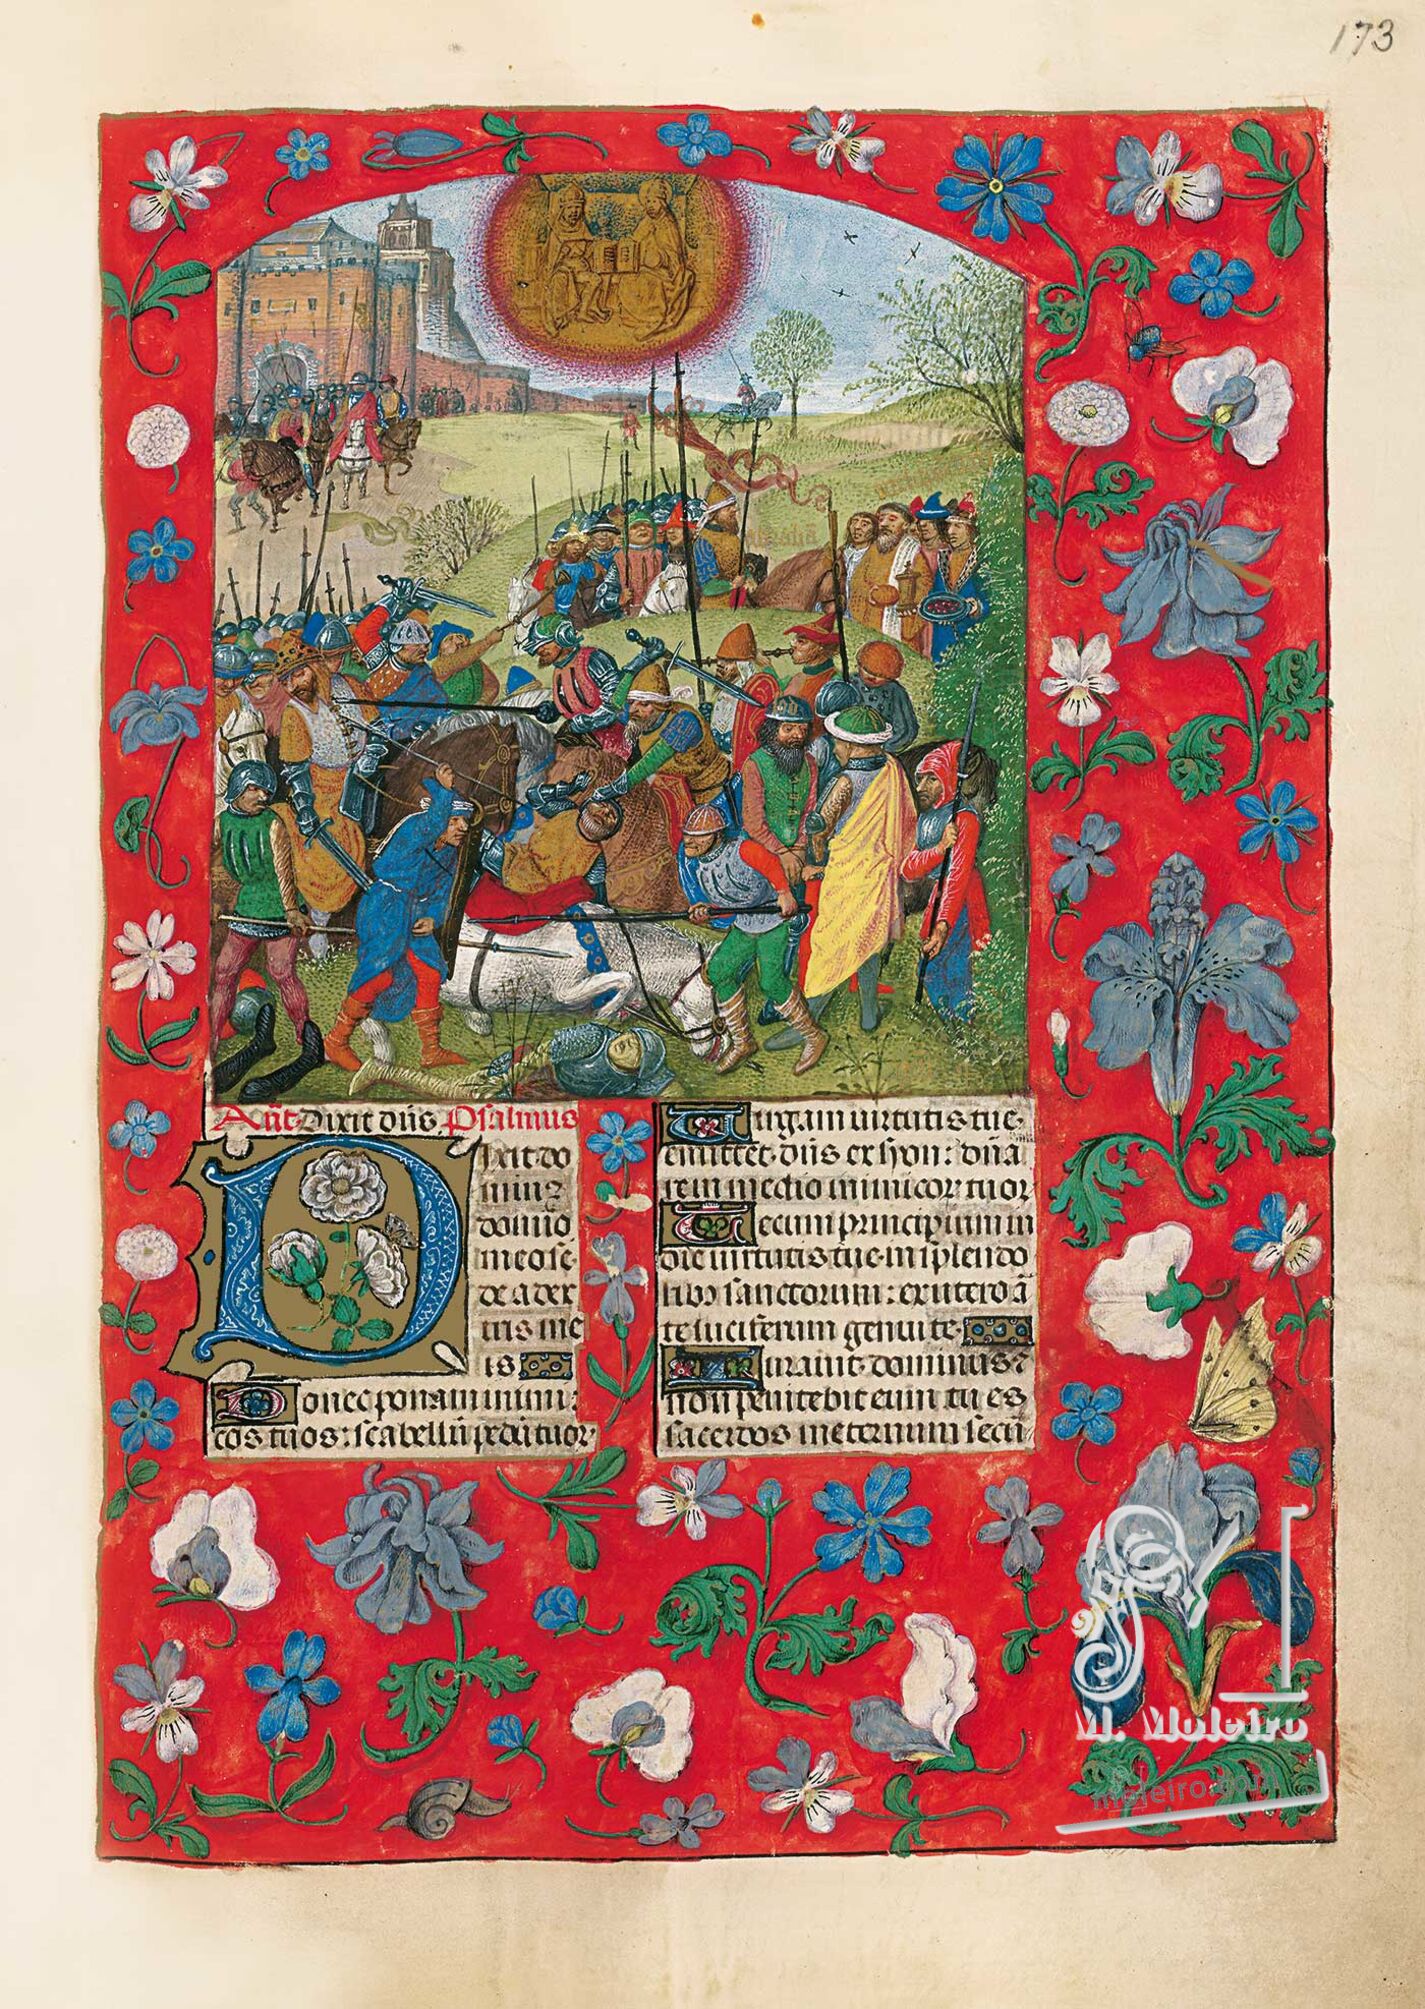 173
Añt Dixit dñs. Psalmus
Dixit do
minꝰ
domiño
meo: se
de a dex
tris me
is
Donec ponam inimi:
cos tuos: scabellũ pedũ tuoꝝ
Virgam uirtutis tue
emittet dñs ex syon: dñã
re in medio inimicoꝝ tuoꝝ
Tecum principium in
die uirtutis tue in splendo
ribꝫ sanctorum: ex utero ã
te luciferum genui te
Iurauit dominus ⁊
non penitebit eum tu es
sacerdos in eternum secũ
M. Moleiro
moleiro.com